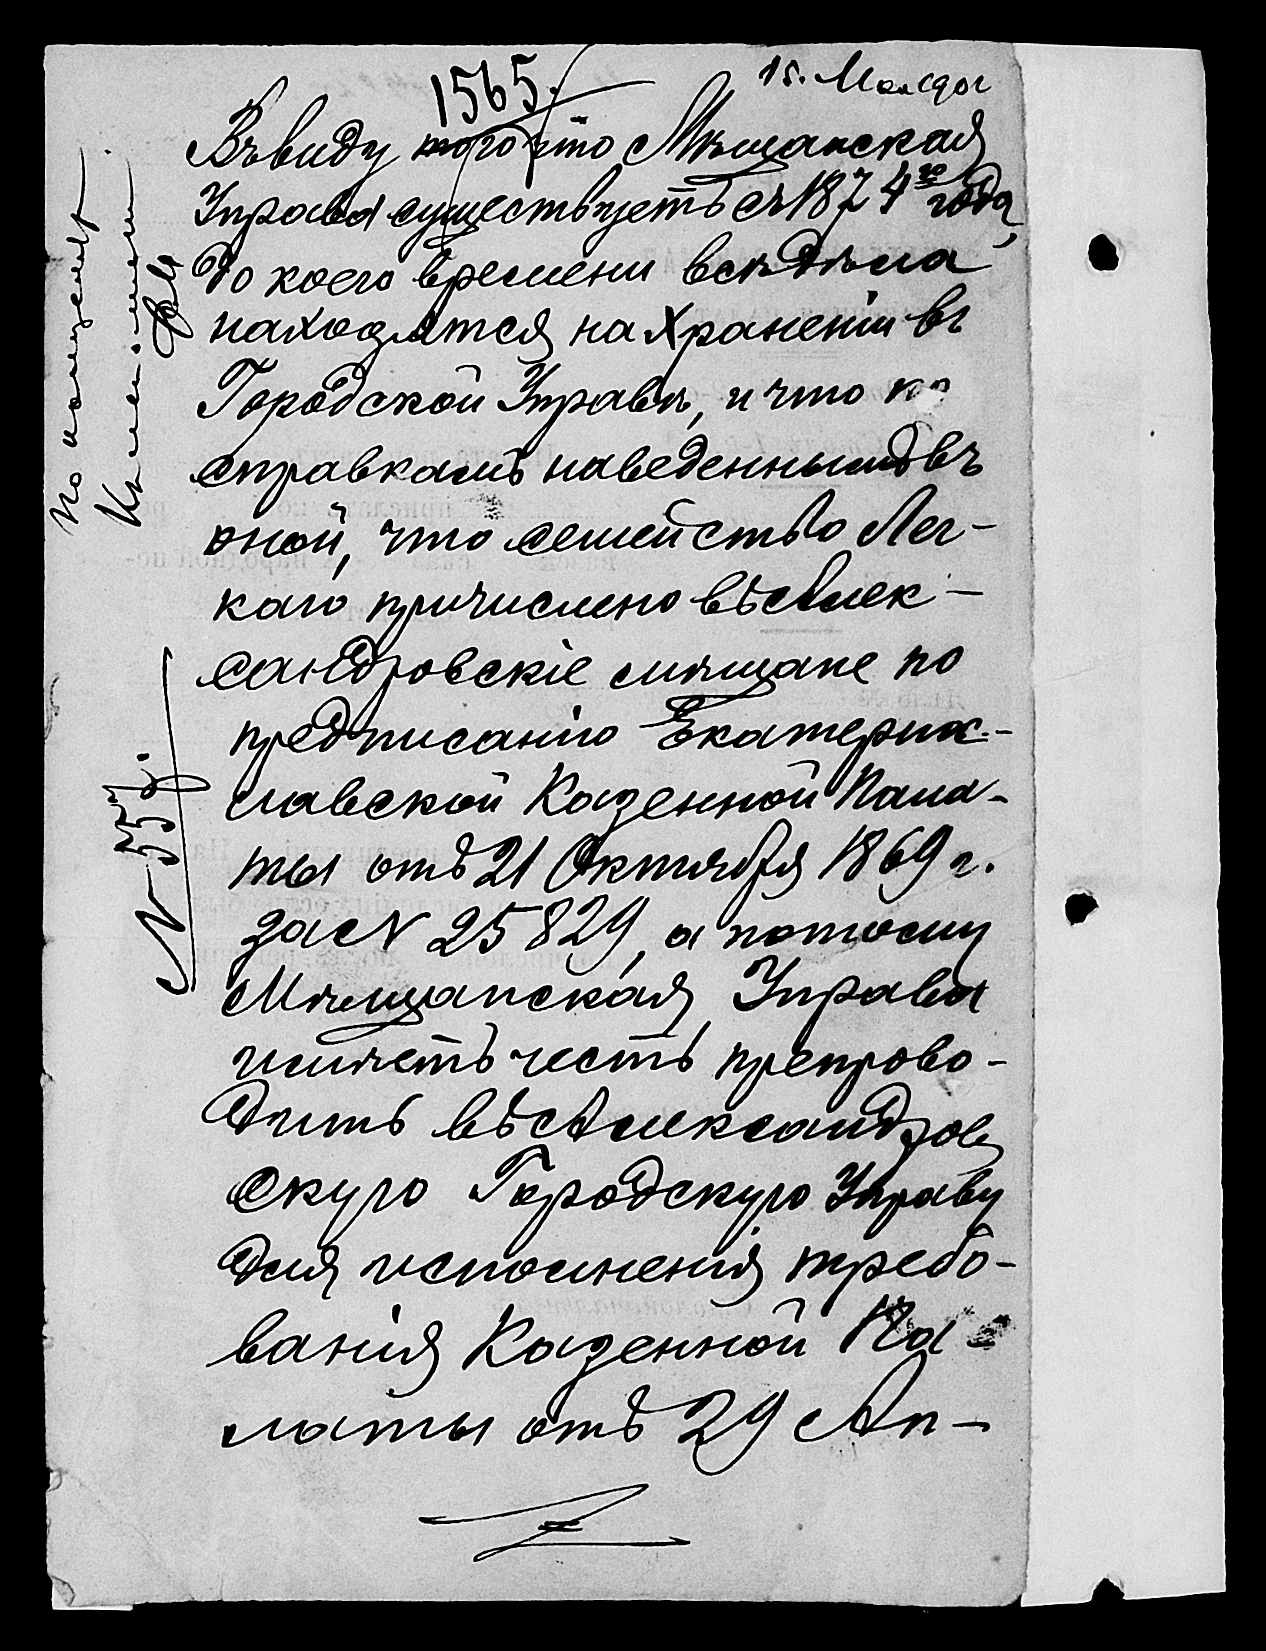 1565.
Въ виду того что Мѣщанская
Управа существуетъ съ 1874го года,
до коего времени всѣ дѣла
находятся на храненіи въ
Городской Управѣ, и что по
справкамъ наведеннымъ въ
оной, что семейство Лег-
каго причислено въ Алек-
сандровскіе мѣщане по
предписанію Екатерино-
славской Казенной Пала-
ты отъ 21 Октября 1869 г.
за № 25829, а потому
Мѣщанская Управа
имѣетъ честь препрово-
дить въ Александров
скую Городскую Управу
для исполненія требо-
ванія Казенной Па
латы отъ 29 Ап-